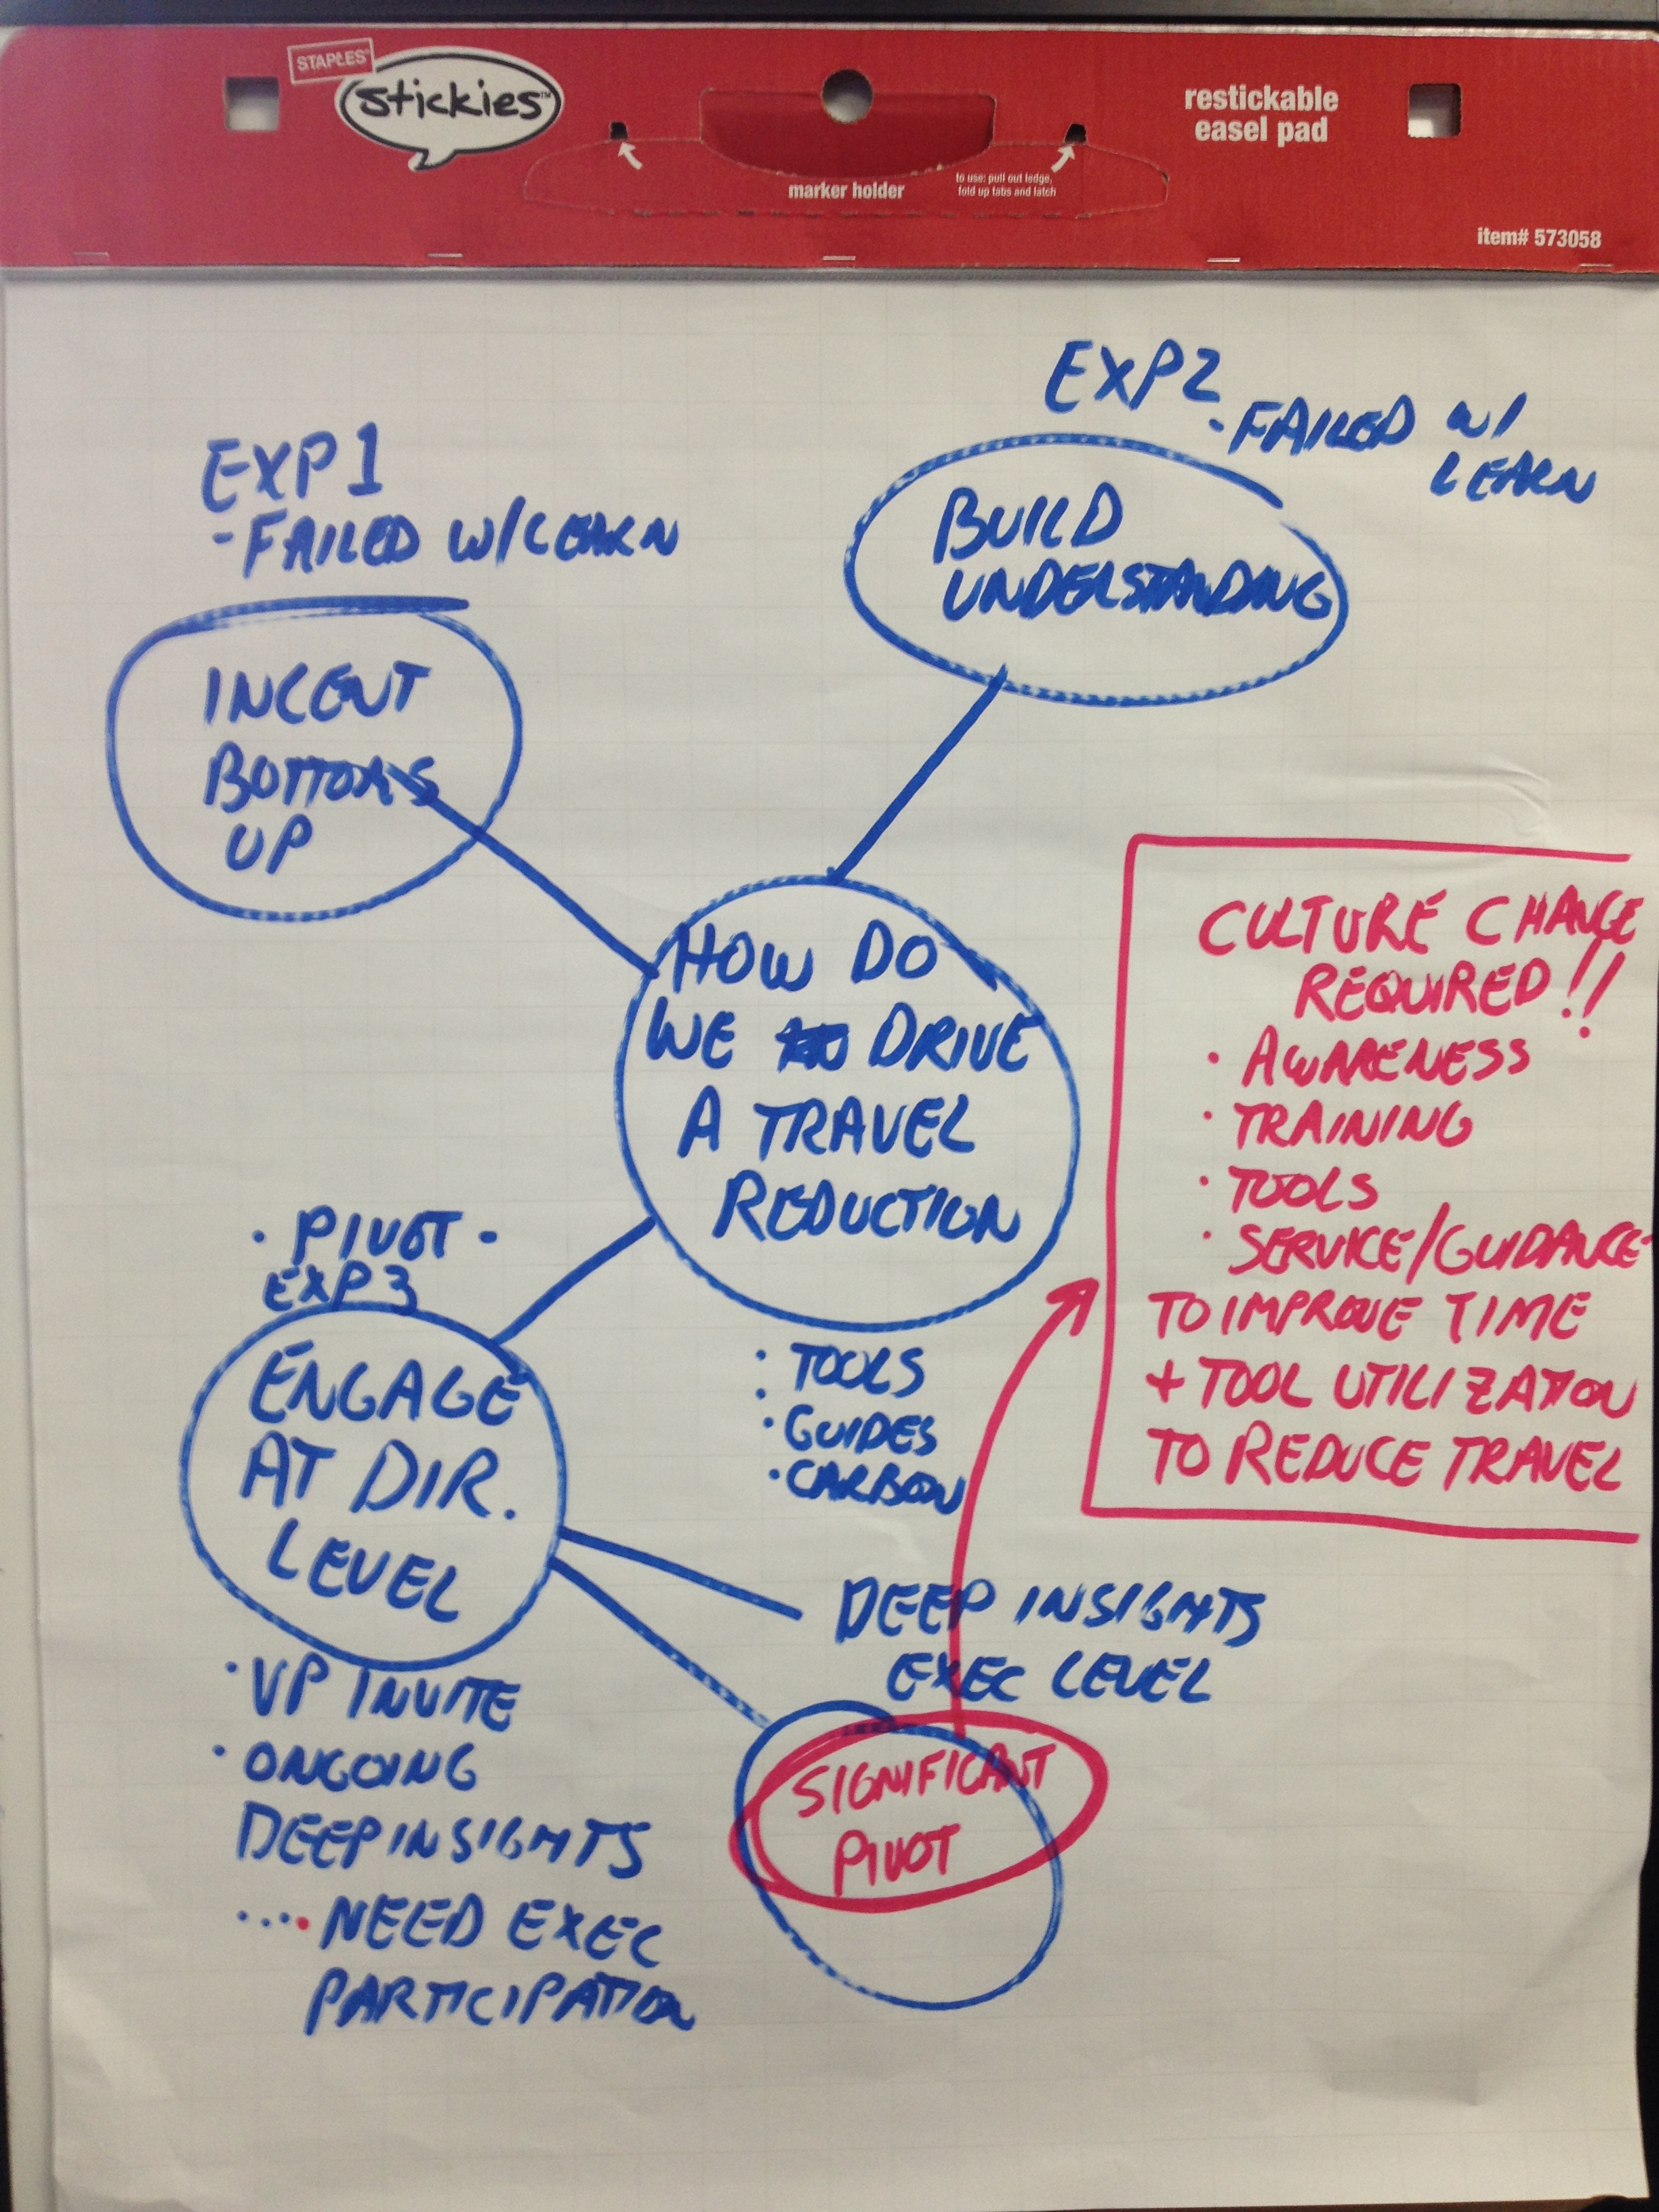 STAPLES
Stickies™
restickable
easel pad
marker holder
to use: pull out ledge,
fold up tabs and latch
item# 573058
EXP2
-FAILED W/
LEARN
EXP1
-FAILED W/LEARN
BUILD
UNDERSTANDING
INCENT
BOTTOMS
UP
HOW DO
WE DRIVE
A TRAVEL
REDUCTION
CULTURE CHANGE
REQUIRED!!
· AWARENESS
· TRAINING
· TOOLS
· SERVICE/GUIDANCE
TO IMPROVE TIME
+ TOOL UTILIZATION
TO REDUCE TRAVEL
· PIVOT ·
EXP3
ENGAGE
AT DIR.
LEVEL
: TOOLS
· GUIDES
· CARBON
DEEP INSIGHTS
EXEC LEVEL
· VP INVITE
· ONGOING
DEEP INSIGHTS
....NEED EXEC
PARTICIPATION
SIGNIFICANT
PIVOT